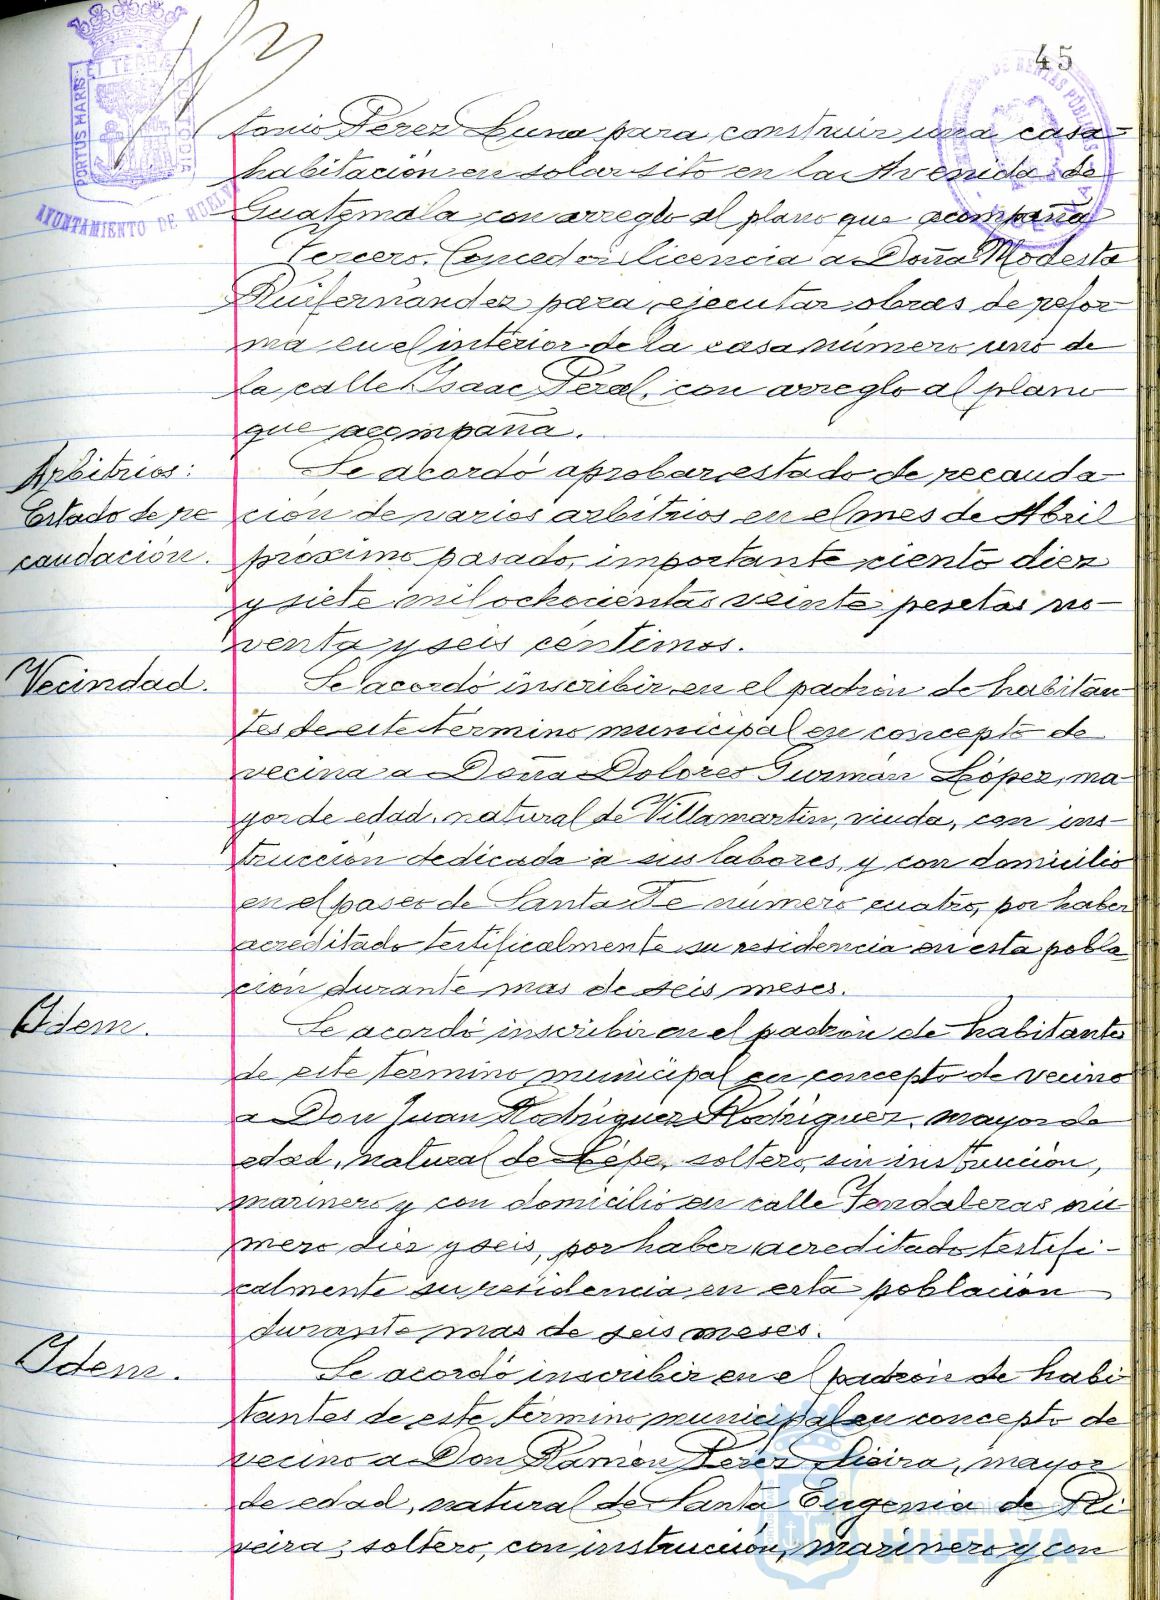 45
PORTUS MARIS ET TERRÆ CUSTODIA
AYUNTAMIENTO DE HUELVA
tonio Pérez Luna para construir una casa-
habitación en solar sito en la Avenida de
Guatemala con arreglo al plano que acompaña
Tercero. Conceder licencia a Doña Modesta
Ruifernández para ejecutar obras de refor-
ma en el interior de la casa número uno de
la calle Isaac Peral, con arreglo al plano
que acompaña.
Arbitrios:
Estado de re
caudación.
Se acordó aprobar estado de recauda-
ción de varios arbitrios en el mes de Abril
próximo pasado, importante ciento diez
y siete mil ochocientas veinte pesetas no-
venta y seis céntimos.
Vecindad.
Se acordó inscribir en el padrón de habitan-
tes de este término municipal en concepto de
vecina a Doña Dolores Guzmán López, ma-
yor de edad, natural de Villamartin, viuda, con ins-
trucción dedicada a sus labores, y con domicilio
en el paseo de Santa Fe número cuatro, por haber
acreditado testificalmente su residencia en esta pobla
ción durante mas de seis meses.
Idem.
Se acordó inscribir en el padrón de habitantes
de este término municipal en concepto de vecino
a Don Juan Rodríguez Rodríguez, mayor de
edad, natural de Lepe, soltero, sin instrucción,
marinero y con domicilio en calle Tendaleras nú
mero diez y seis, por haber acreditado testifi-
calmente su residencia en esta población
durante mas de seis meses.
Idem.
Se acordó inscribir en el padrón de habi
tantes de este término municipal en concepto de
vecino a Don Ramón Pérez Sieira, mayor
de edad, natural de Santa Eugenia de Ri
veira, soltero, con instrucción, marinero y con
HUELVA